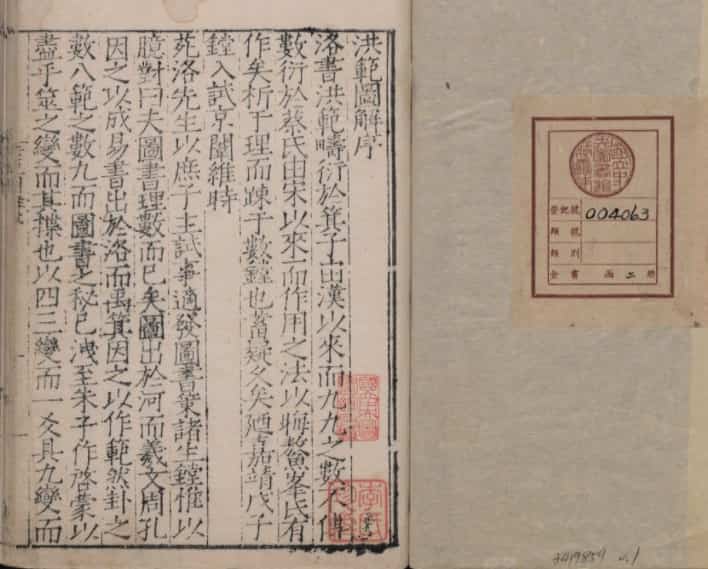 洪範圖解序
洛書洪範疇衍於箕子由漢以來而九九之數不傳
數衍於蔡氏由宋以來而作用之法以晦鰲峯氏有
作矣析于理而踈于數鏜也蓄疑久矣廼嘉靖戊子
鏜入試京闈維時
苑洛先生以庶子主試事適發圖書策諸生鏜惟以
臆對曰夫圖書理數而已矣圖出於河而羲文周孔
因之以成易書出於洛而禹箕因之以作範然卦之
數八範之數九而圖書之秘已洩至朱子作啓蒙以
盡乎筮之變而其揲也以四三變而一爻具九變而
登記號 004063
類號
類別
全書 函 二 册
3419854 v.1